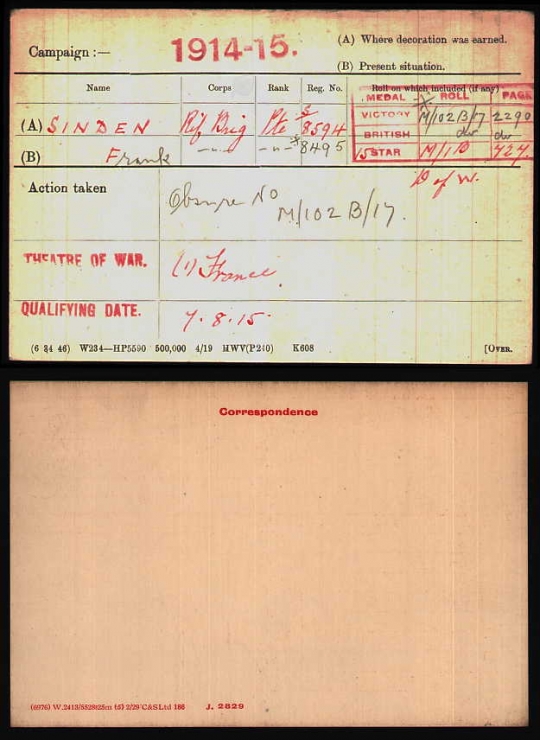 Campaign :—
1914-15.
(A) Where decoration was earned.
(B) Present situation.
Name Corps Rank Reg. No. Roll on which included (if any)
MEDAL ROLL PAGE
(A) SINDEN Rif Brig Pte S/8594 VICTORY M/102B/17 2290
BRITISH do do
(B) Frank -"- -"- S/8495 15 STAR M/1B 427.
D of W.
Action taken
No M/102 B/17.
THEATRE OF WAR. (1) France.
QUALIFYING DATE. 7.8.15.
(6 34 46) W234—HP5590 500,000 4/19 HWV(P240) K608 [OVER.
Correspondence
(6976) W.2413/5528 (25m (6) 2/29 C&S Ltd 186 J. 2829